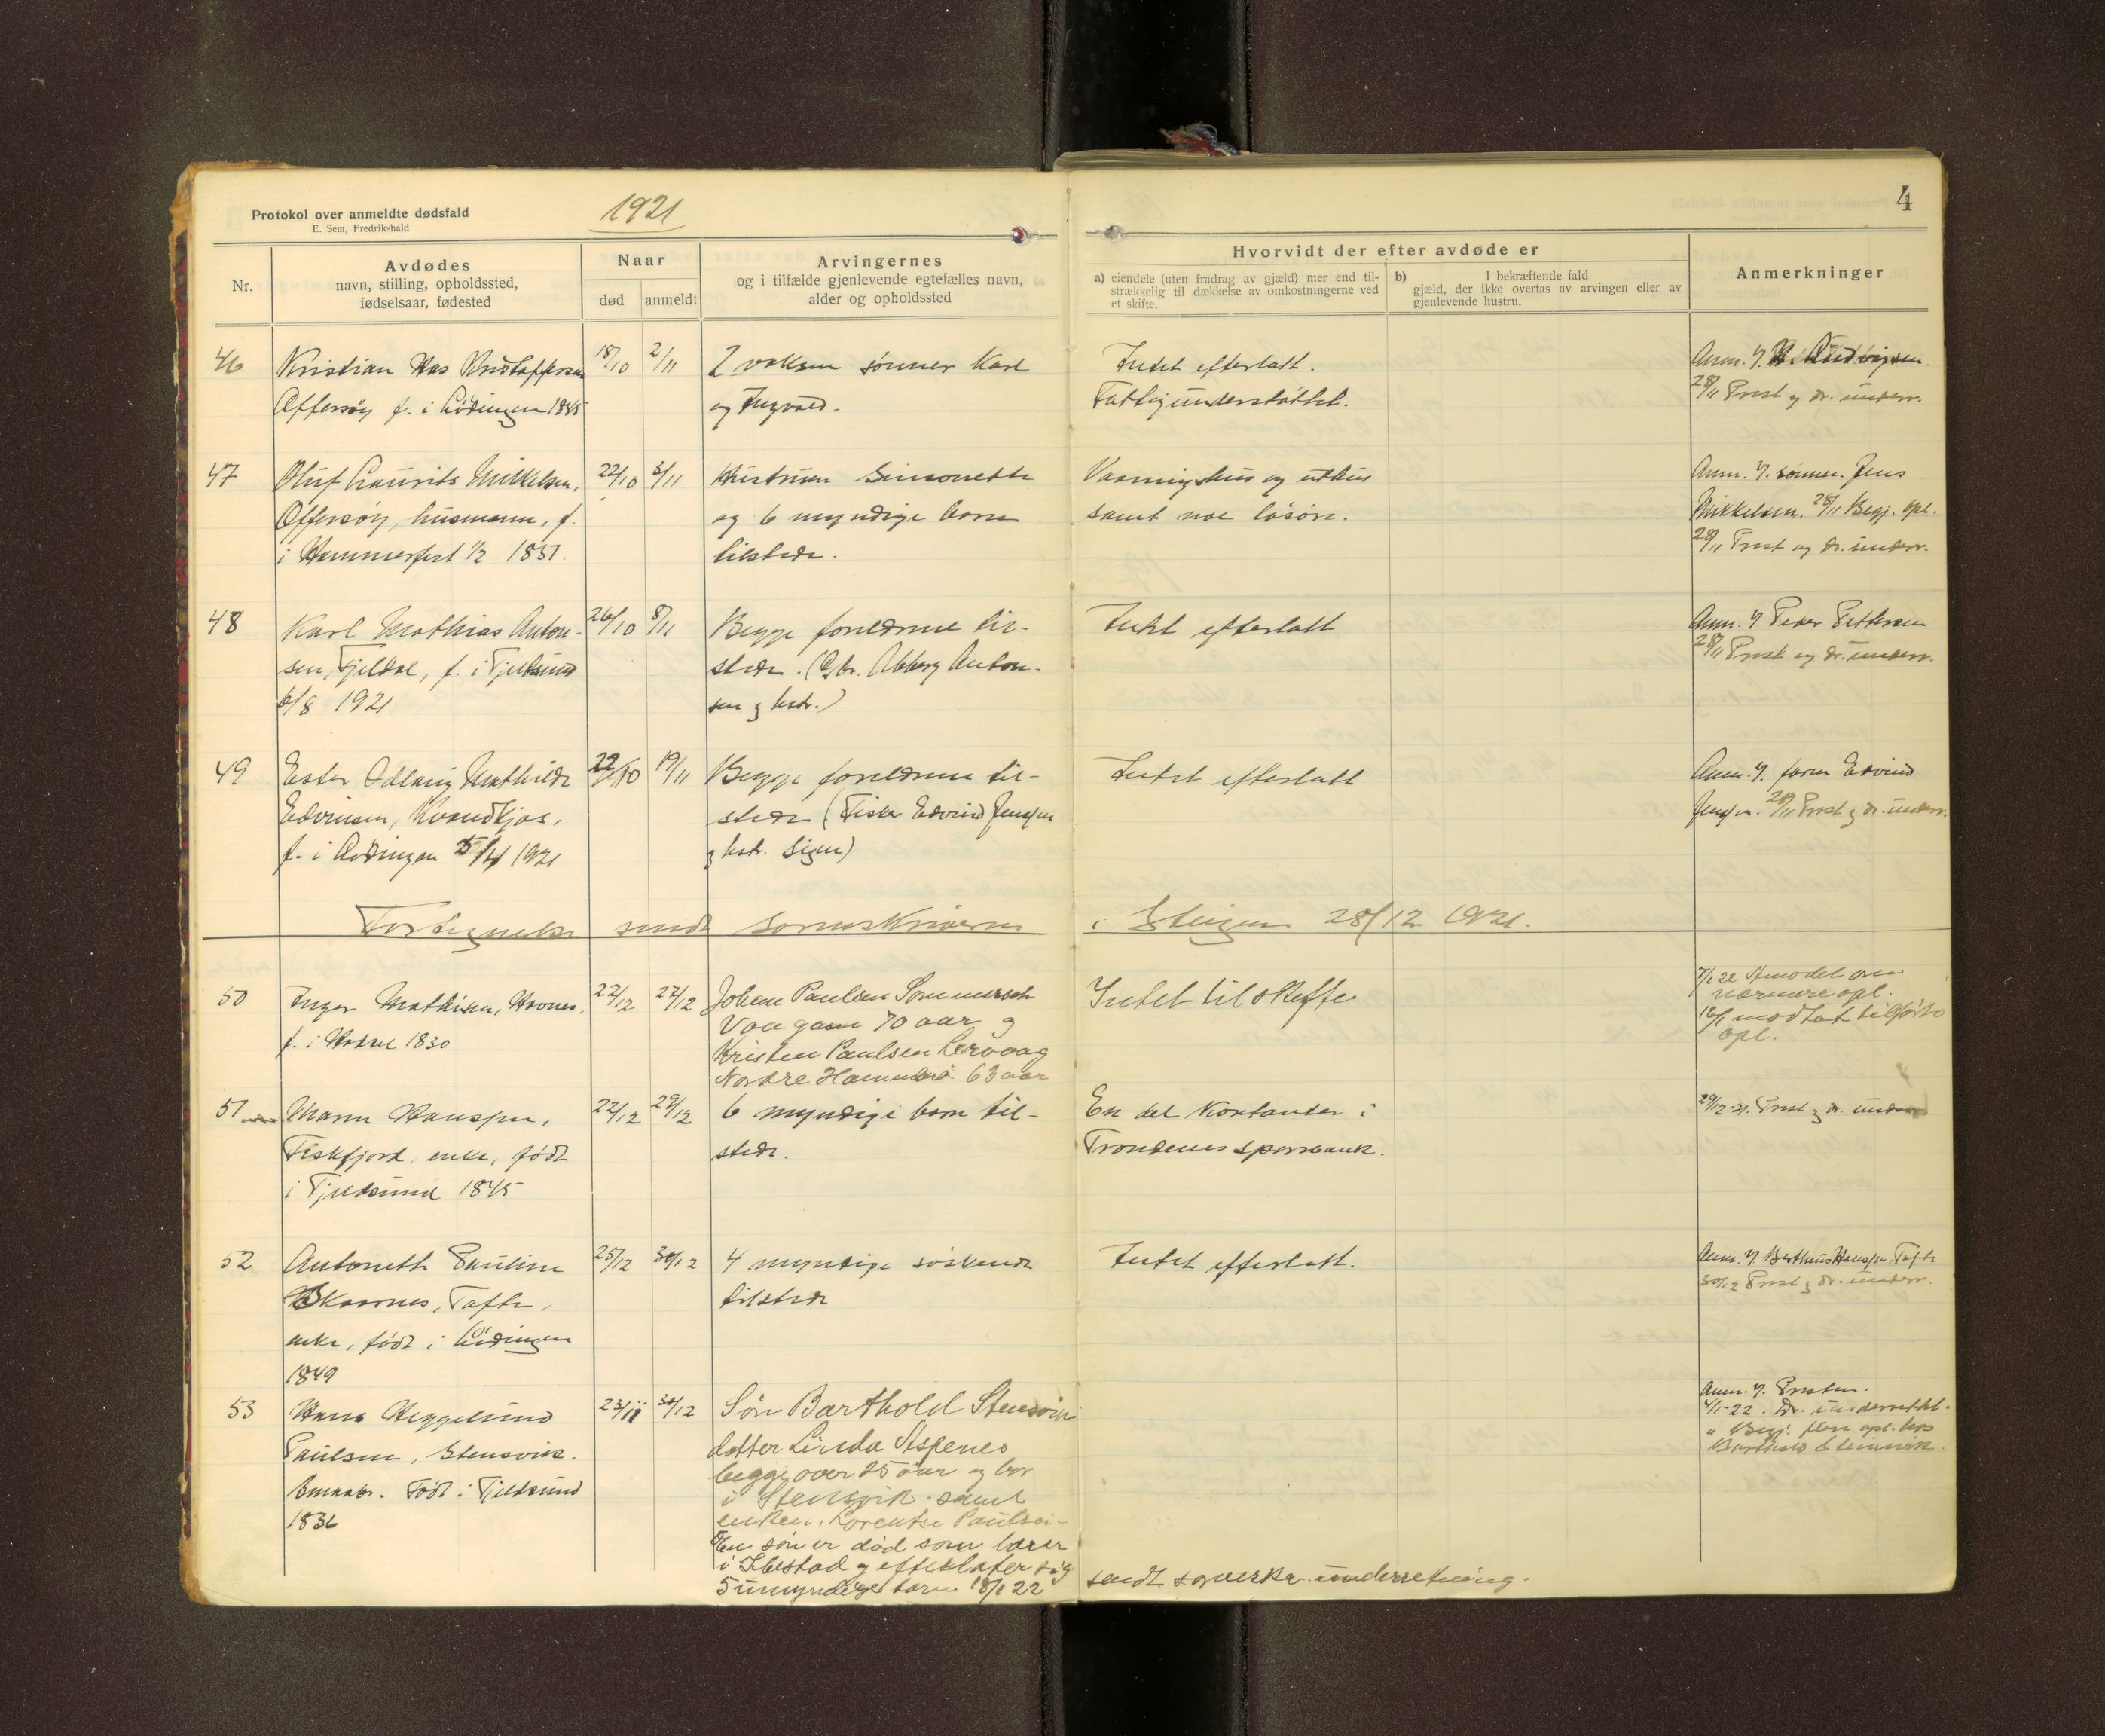 Protokol over anmeldte dødsfald
E. Sem, Fredrikshald
1921
4
Nr.
Avdødes
navn, stilling, opholdssted,
fødselsaar, fødested
Naar
død
anmeldt
Arvingernes
og i tilfælde gjenlevende egtefælles navn,
alder og opholdssted
Hvorvidt der efter avdøde er
a) eiendele (uten fradrag av gjæld) mer end til-
strækkelig til dækkelse av omkostningerne ved
et skifte.
b) I bekræftende fald
gjæld, der ikke overtas av arvingen eller av
gjenlevende hustru.
Anmerkninger
46
Kristian Has Kristoffersen
Offersøy f. i Lödingen 1845
18/10
2/11
2 voksen sönner Karl
og Ingvald.
Intet efterlatt.
Fattigunderstöttet.
Anm. af
28/11 Prest og dr. underr.
47
Oluf Laurits Mikkelsen,
Offersöy, husmann, f.
i Hammerfest 1/2 1851.
22/10
3/11
Hustruen Simonette
og 6 myndige barn
tilstede.
Vaaningshus og uthus
samt noe lösöre.
Anm. af sönnen Jens
Mikkelsen. 28/11 Begj. opl.
28/11 Prest og dr. underr.
48
Karl Mathias Anton-
sen, Fjeldal, f. i Fjeldsund
6/8 1921
26/10
8/11
Begge foreldrene til-
stede. (Gbr. Anton-
sen og hstr.)
Intet efterlatt
Anm. af Peder Pettersen
28/11 Prest og dr. underr.
49
Ester Odlaug Mathilde
Edvinsen, Kvandkjos,
f. i Lödingen 5/4 1921
22/10
19/11
Begge foreldrene til-
stede (Fisker Edvind Jenssen
og hstr. Signe)
Intet efterlatt
Anm. af faren Edvind
Jenssen. 28/11 Prest og dr. underr.
Fortegnelse sendt sorenskriveren i Steigen 28/12 1921.
50
Inger Mathisen, Hovnes,
f. i Hadsel 1830
22/12
27/12
Johan Paulsen Sommerset
Vaagan 70 aar og
Kristen Paulsen
Nordre Hammarö 63 aar
Intet til skifte
7/1 22 Anmodet om
nærmere opl.
16/1 modtat tilförte
opl.
51
Maren Hanssen,
Fiskfjord, enke, födt
i Fjeldsund 1845
22/12
29/12
6 myndige barn til-
stede.
En del kontanter i
Trondenes sparebank.
29/12-21. Prest og dr. underr
52
Antonette Pauline
Skaarnes, Taft,
enke, födt i Lödingen
1849
25/12
30/12
4 myndige söskende
tilstede
Intet efterlatt.
Anm. af Berthus Hanssen, Taft
30/12 Prest og dr. underr.
53
Hans Heggelund
Paulsen, Stensvik.
Födt i Fjeldsund
1836
23/11
30/12
Sön Barthold Stensvik
datter Linda Aspenes
begge over 25 aar og bor
i Stensvik. samt
enken, Lorentse Paulsen
En sön er död som lærer
i Ibestad og efterlater sig
5 umyndige barn 18/1 22 sendt sorenskr. underretning.
Anm. af Presten.
4/1-22. Dr. underrettet.
" Begj. flere opl. hos
Barthold Stensvik.